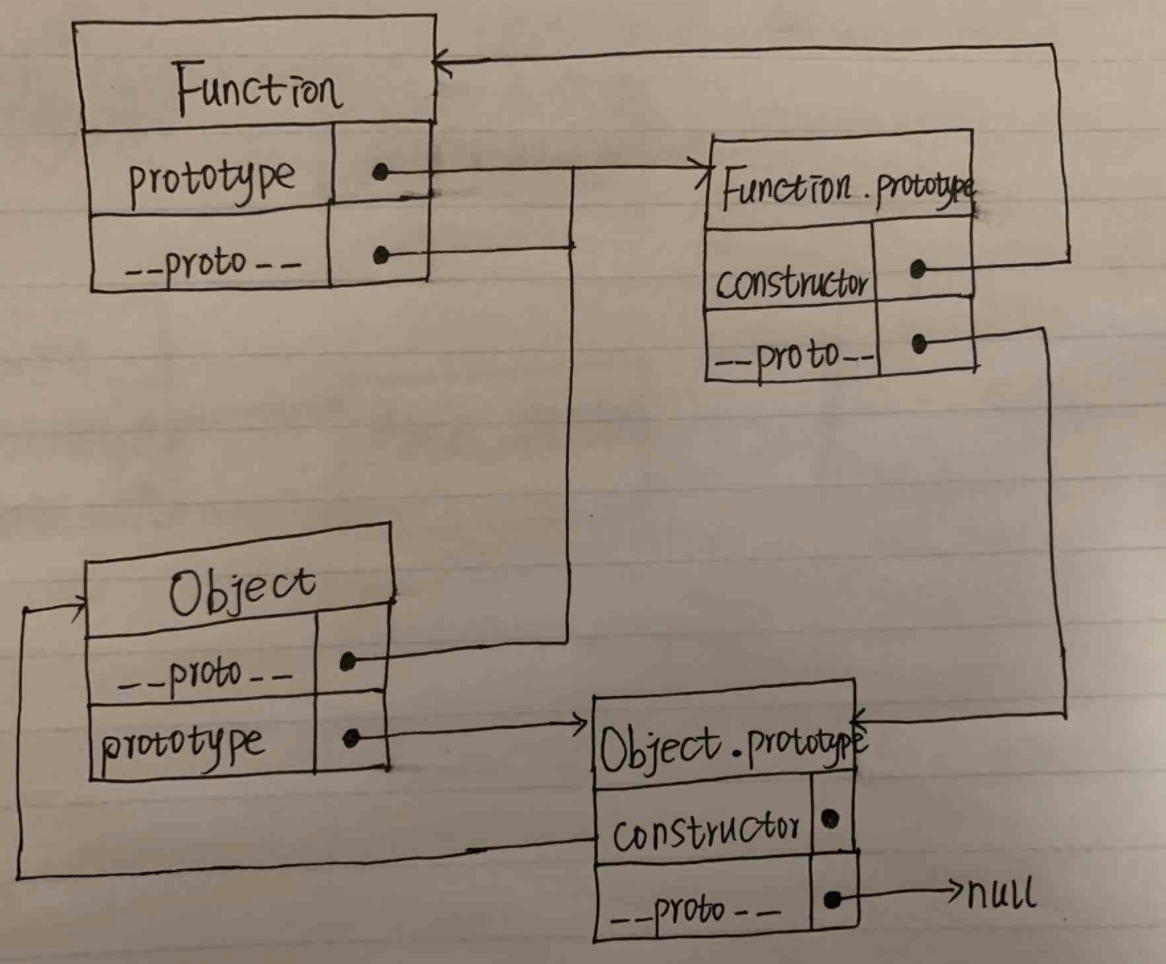 Function
prototype
--proto--
Function.prototype
constructor
--proto--
Object
--proto--
prototype
Object.prototype
constructor
--proto--
null